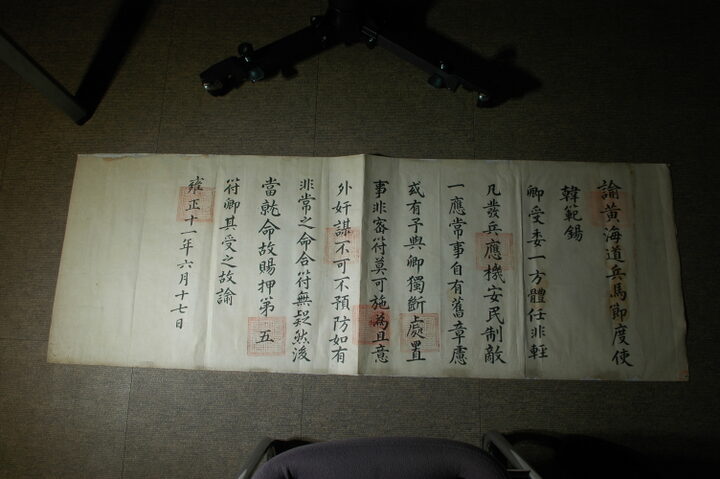 諭黃海道兵馬節度使
韓範錫
卿受委一方體任非輕
凡發兵應機安民制敵
一應常事自有舊章慮
或有予與卿獨斷處置
事非密符莫可施為且意
外奸謀不可不預防如有
非常之命合符無疑然後
當就命故賜押第 五
符卿其受之故諭
雍正十一年六月十七日